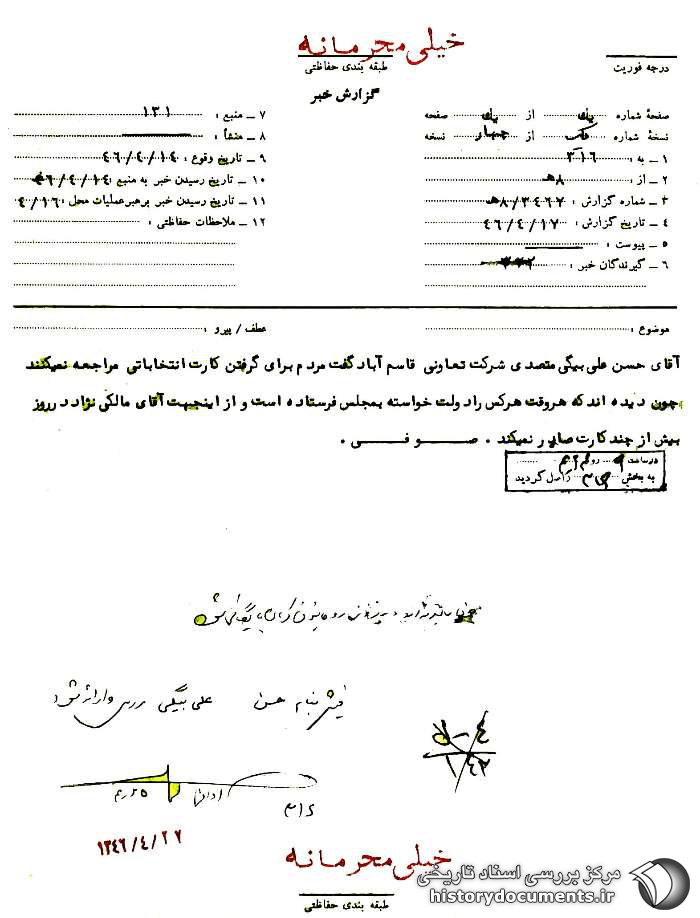 خیلی محرمانه
طبقه بندی حفاظتی
درجه فوریت
گزارش خبر
صفحهٔ شماره یک از یک صفحه
نسخهٔ شماره یک از چهار نسخه
۱ – به : ۳۱۶
۲ – از : ۸هـ
۳ – شماره گزارش : ۸هـ/۳۴۶۷
۴ – تاریخ گزارش : ۴۶/۴/۱۷
۵ – پیوست :
۶ – گیرندگان خبر :
۷ – منبع : ۱۳۱
۸ – منشأ :
۹ – تاریخ وقوع : ۴۶/۴/۱۴
۱۰ – تاریخ رسیدن خبر به منبع : ۴۶/۴/۱۴
۱۱ – تاریخ رسیدن خبر برهبرعملیات محل : ۴/۱۶
۱۲ – ملاحظات حفاظتی :
موضوع :
عطف / پیرو :
آقای حسن علی بیگی متصدی شرکت تعاونی قاسم آباد گفت مردم برای گرفتن کارت انتخاباتی مراجعه نمیکنند
چون دیده اند که هروقت هرکس را دولت خواسته بمجلس فرستاده است و از اینجهت آقای مالکی نژاد در روز
بیش از چند کارت صادر نمیکند . صوفی .
در ساعت ۹ روز
به بخش واصل گردید
فیش بنام حسن علی بیگی بررسی و ارائه شود
۱۳۴۶/۴/۲۷
خیلی محرمانه
طبقه بندی حفاظتی
مرکز بررسی اسناد تاریخی
historydocuments.ir